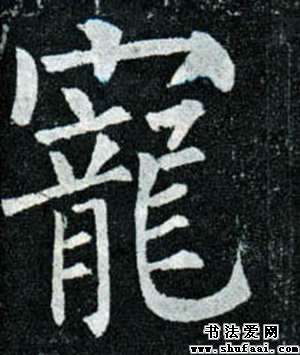 寵
书法爱网
www.shufaai.com